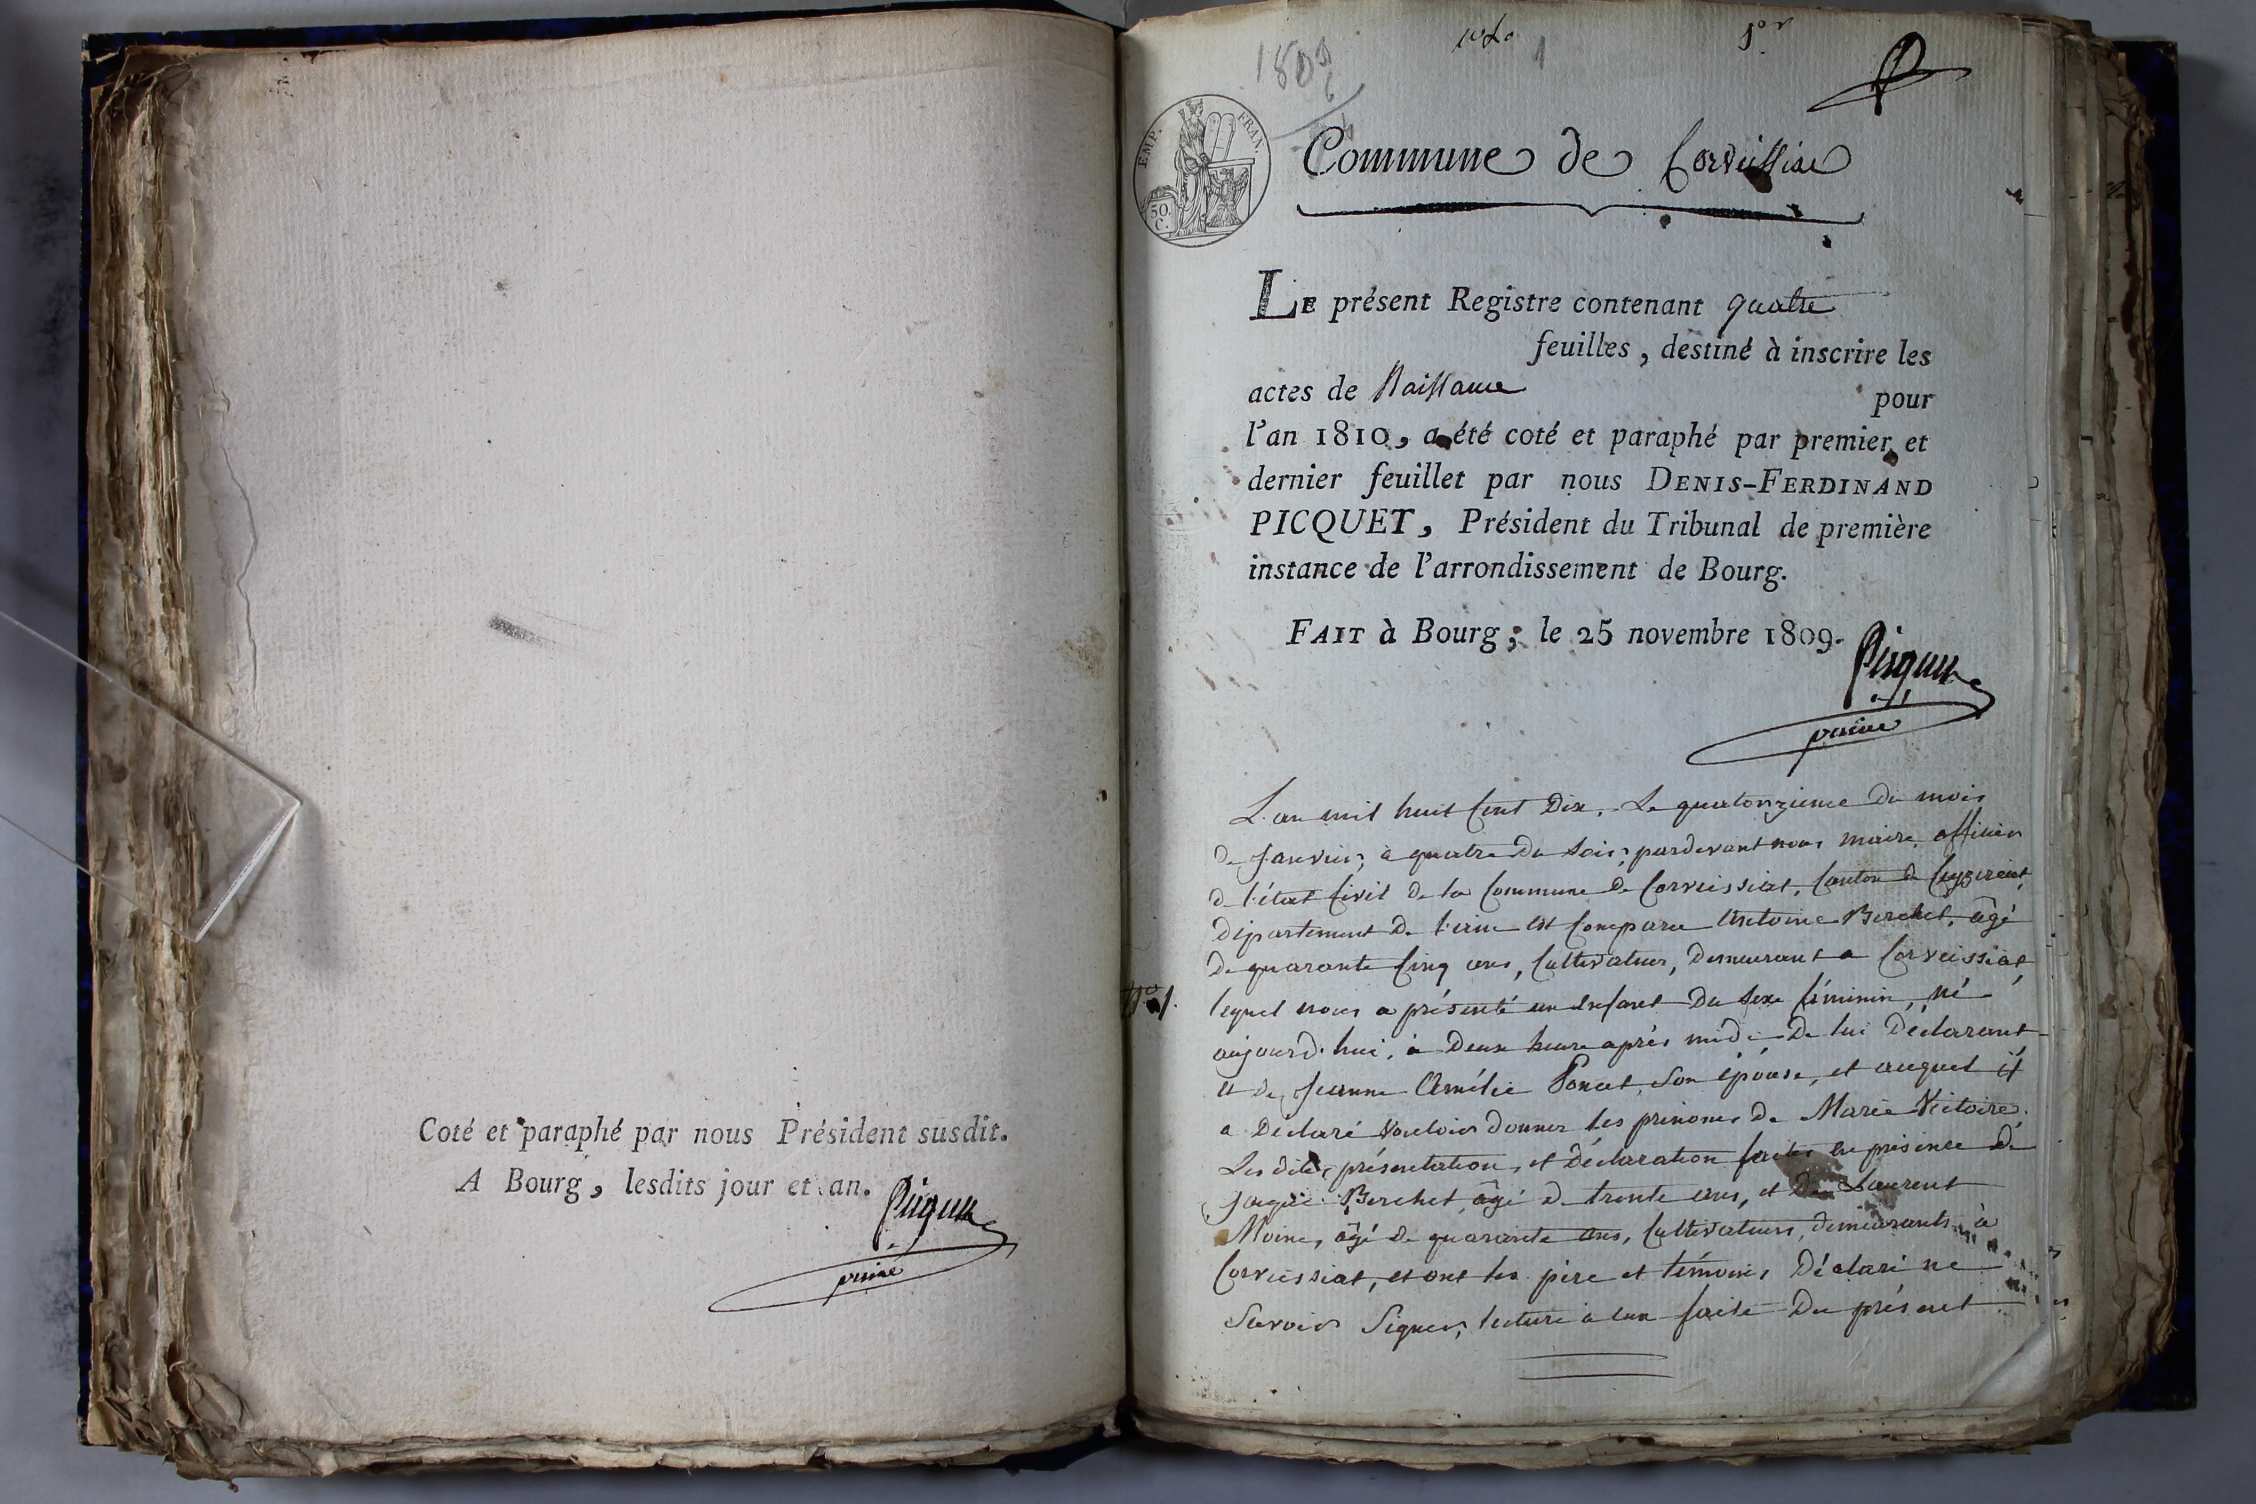 Coté et paraphé par nous Président susdit.
A Bourg, lesdits jour et an.
Picquet
1809
1
1er
EMP. FRAN.
50.
C.
Commune de Corveissiat
LE présent Registre contenant quatre
feuilles, destiné à inscrire les
actes de Naissance pour
l'an 1810, a été coté et paraphé par premier et
dernier feuillet par nous DENIS-FERDINAND
PICQUET, Président du Tribunal de première
instance de l'arrondissement de Bourg.
FAIT à Bourg, le 25 novembre 1809.
Picquet
L'an mil huit Cent Dix, Le quatorzieme Du mois
De Janvier, à quatre du soir, pardevant nous maire officier
De l'état Civil De la Commune De Corveissiat, Canton De Ceyzeriat,
département De l'ain est Comparu Antoine Berchet, âgé
De quarante Cinq ans, Cultivateur, Demeurant a Corveissiat,
No 1.
lequel nous a présenté un Enfant Du sexe féminin, né
aujourd'hui, à Deux heure après midi De lui Déclarant
et De Jeanne Amélie Poncet son épouse, et auquel il
a Déclaré vouloir donner les prénoms De Marie Victoire.
Les dites présentation, et Déclaration faites en présence De
Jaque Berchet âgé De trente ans, et De Laurent
Moine, âgé De quarante ans, Cultivateurs, demeurants à
Corveissiat, et ont les père et témoins Déclaré ne
Savoir Signer, lecture à eux faite Du présent